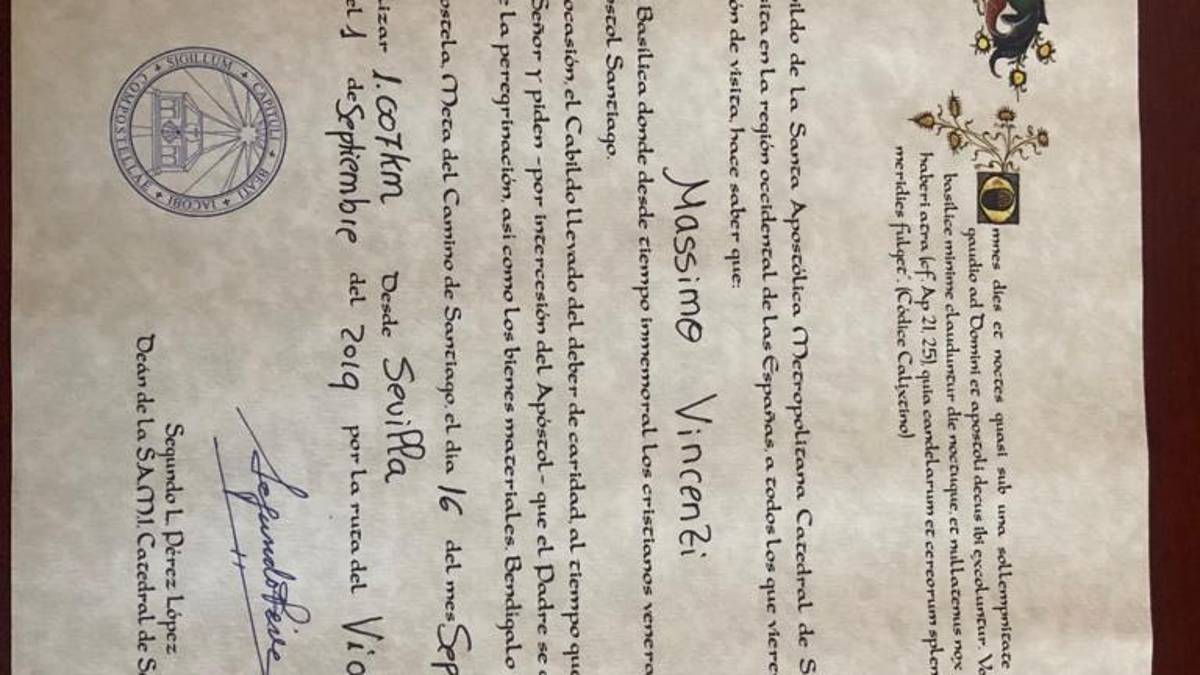 mnes dies et noctes quasi sub una sollempnitate
gaudio ad Domini et apostoli decus ibi excoluntur. Va
basilice minime clauduntur die noctuque, et nullatenus nox
haberi atra (cf. Ap 21, 25), quia candelarum et cereorum splen
meridies fulget". (Códice Calixtino)
bildo de la Santa Apostólica Metropolitana Catedral de S
sita en la región occidental de las Españas, a todos los que viere
ón de visita, hace saber que:
Massimo Vincenzi
Basílica donde desde tiempo inmemorial los cristianos venera
stol Santiago.
ocasión, el Cabildo llevado del deber de caridad, al tiempo que
Señor y piden -por intercesión del Apóstol- que el Padre se
e la peregrinación, así como los bienes materiales. Bendígalo
ostela, Meta del Camino de Santiago, el día 16 del mes Sep
lizar 1.007 Km Desde Sevilla
el 1 de Septiembre del 2019 por la ruta del Vía
SIGILLUM + CAPITULI + BEATI + JACOBI + COMPOSTELLAE +
Segundo L. Pérez López
Deán de la S.A.M.I. Catedral de Sa